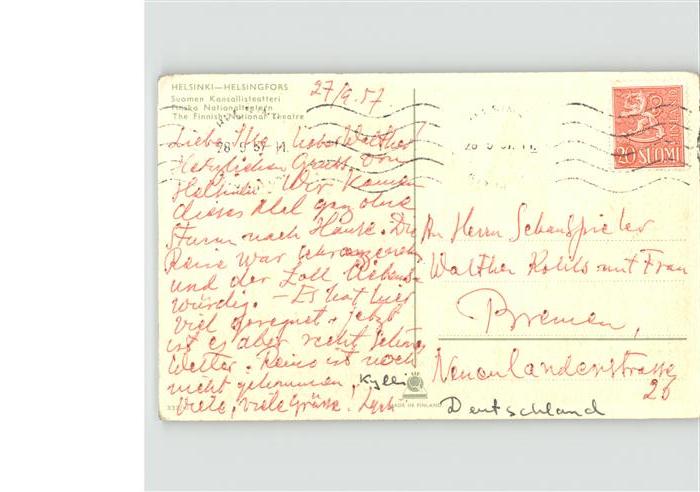 HELSINKI—HELSINGFORS
Suomen Kansallisteatteri
Finska Nationalteatern
The Finnish National Theatre
27/9.57
28.9.57-11
Liebe Lieber Walther!
Herzlichen Gruss von
Helsinki. Wir kamen
dieses Mal ganz ohne
Sturm nach Hause. Die
Reise war sehr angenehm
und der Zoll liebens-
würdig. - Es hat hier
viel geregnet, jetzt
ist es aber recht schönes
Wetter. Reino ist noch
nicht gekommen.
Viele, viele Grüsse!
Kylli
MADE IN FINLAND
20 SUOMI
An Herrn Schauspieler
Walther Kohls mit Frau
Bremen,
Neuenlanderstrasse
26
Deutschland